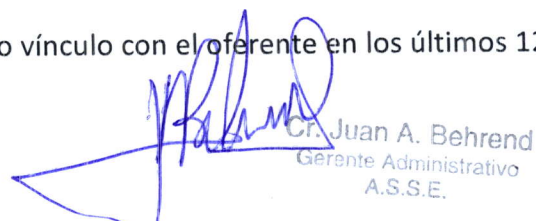 o vínculo con el oferente en los últimos 12
Cr. Juan A. Behrend
Gerente Administrativo
A.S.S.E.